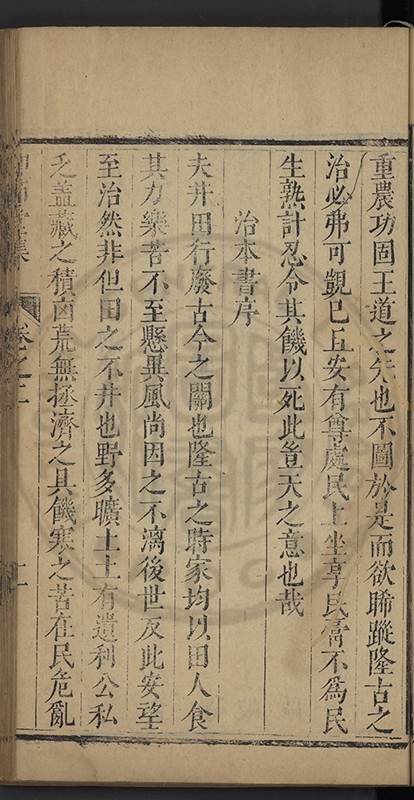 重農功固王道之先也不圖於是而欲睎蹤隆古之
治必弗可覬已且安有尊處民上坐享民膏不為民
生熟計忍令其饑以死此豈天之意也哉
治本書序
夫井田行廢古今之關也隆古之時家均以田人食
其力樂苦不至懸異風尚因之不漓後世反此安望
至治然非但田之不井也野多曠土土有遺利公私
乏蓋藏之積凶荒無拯濟之具饑寒之苦在民危亂
集 卷之二
十一